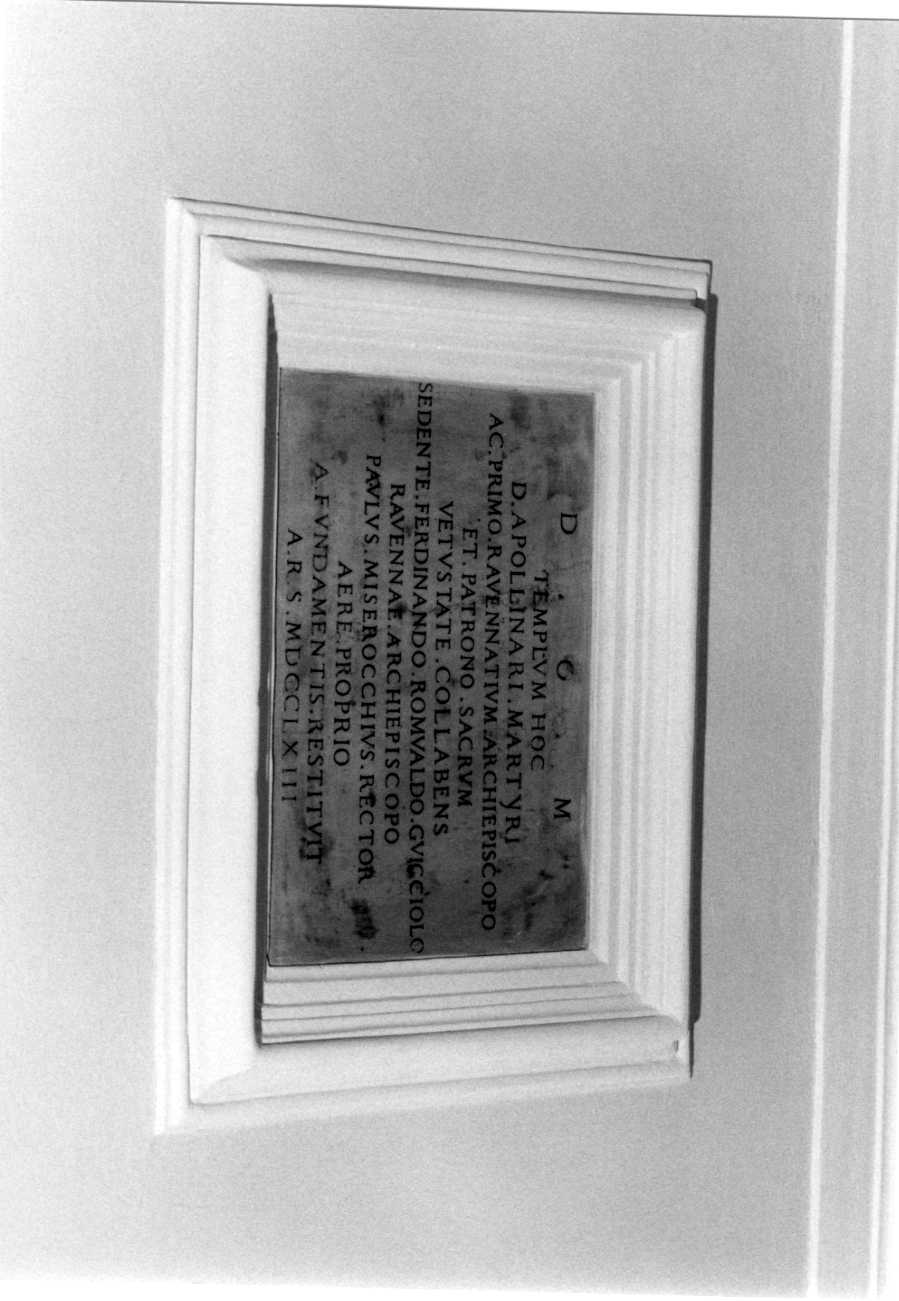 D . O . M
TEMPLVM HOC
D. APOLLINARI. MARTYRI
AC. PRIMO. RAVENNATIVM. ARCHIEPISCOPO
ET. PATRONO. SACRVM
VETVSTATE. COLLABENS
SEDENTE. FERDINANDO. ROMVALDO. GVICCIOLO
RAVENNAE. ARCHIEPISCOPO
PAVLVS. MISEROCCHIVS. RECTOR
AERE. PROPRIO
A. FVNDAMENTIS. RESTITVIT
A. R. S. MDCCLXIII